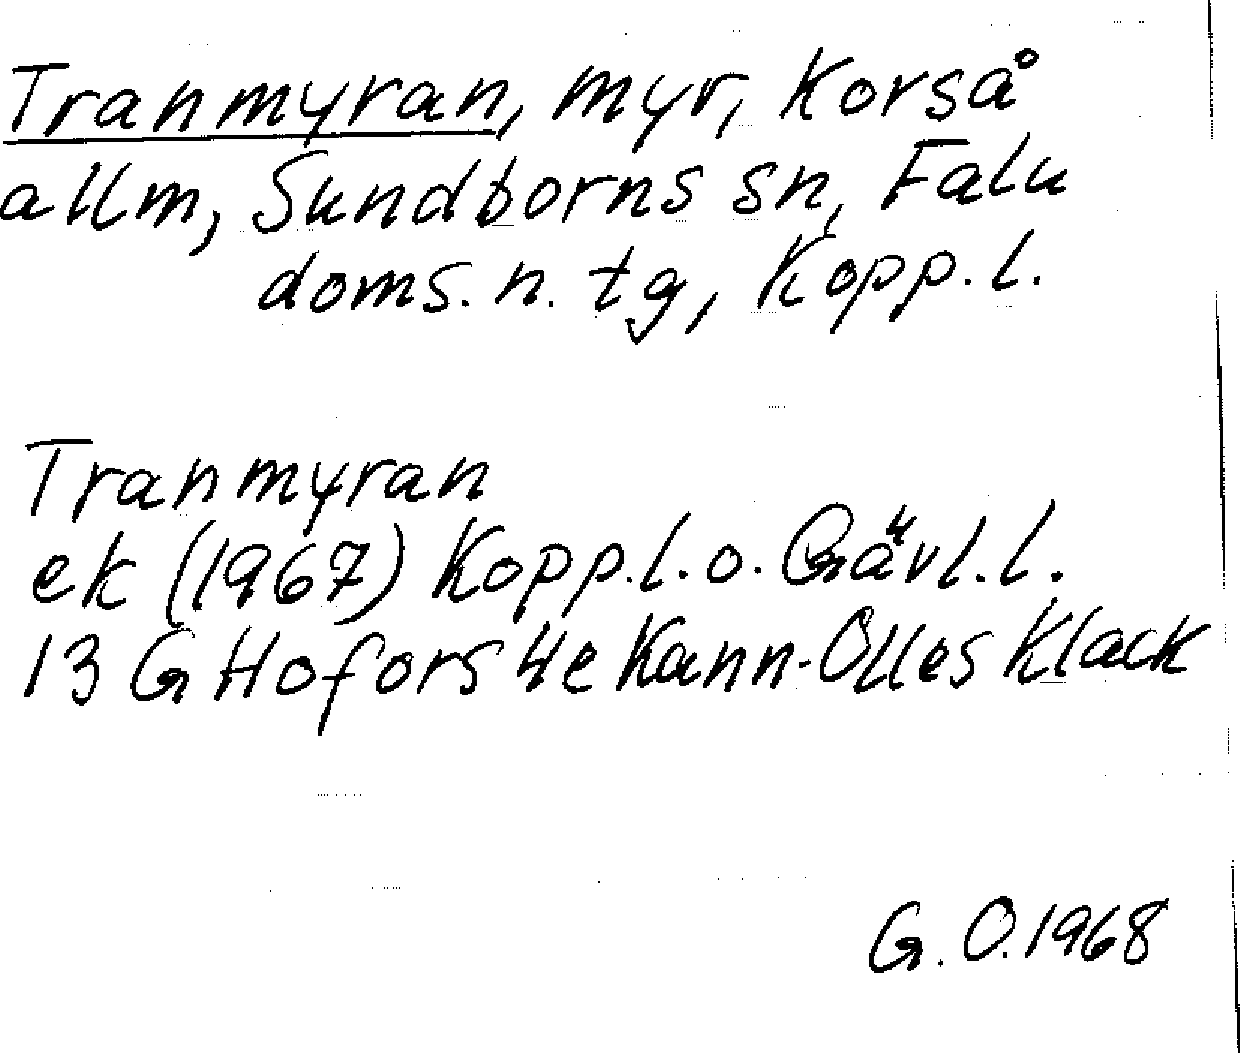 Tranmyran, myr, Korså
allm, Sundborns sn, Falu
doms. n. tg, Kopp. l.
Tranmyran
ek (1967) Kopp.l. o. Gävl. l.
13 G Hofors 4e Kann-Olles Klack
G. O. 1968